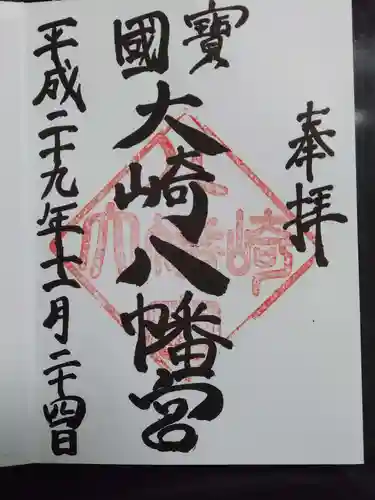 奉拝
寶國
大崎八幡宮
平成二十九年十一月二十四日